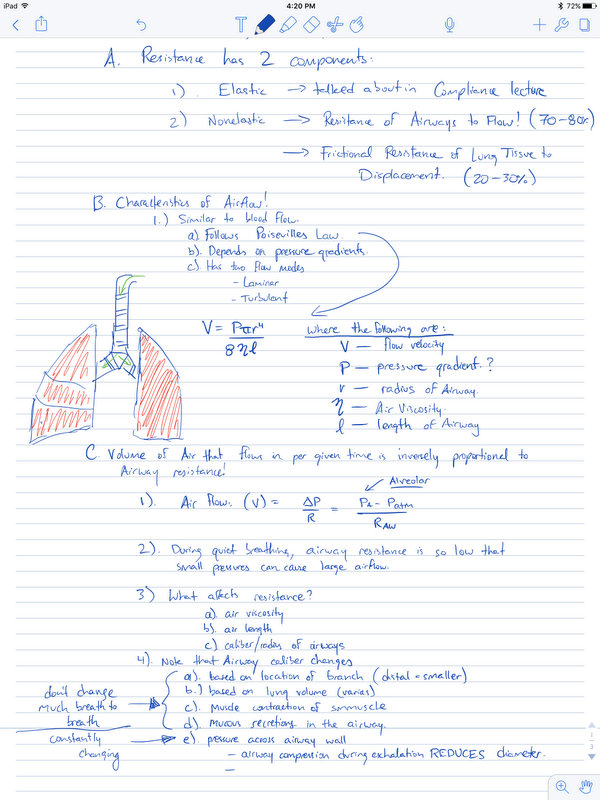 iPad
4:20 PM
72%
T
A. Resistance has 2 components:
1). Elastic → talked about in Compliance lecture
2) Nonelastic → Resistance of Airways to Flow! (70-80%)
→ Frictional Resistance of Lung Tissue to
Displacement. (20-30%)
B. Characteristics of Airflow!
1.) Similar to blood flow.
a) Follows Poisevilles Law.
b). Depends on pressure gradients.
c) Has two flow modes
- Laminar
- Turbulent
V = Pπr⁴ / 8ηl
where the following are:
V — flow velocity
P — pressure gradient.?
r — radius of Airway.
η — Air Viscosity.
l — length of Airway
C. Volume of Air that flows in per given time is inversely proportional to
Airway resistance!
Alveolar
1). Air flow. (V) = ΔP / R = PA - Patm / RAW
2). During quiet breathing, airway resistance is so low that
small pressures can cause large airflow.
3) What affects resistance?
a). air viscosity
b). air length
c) caliber/radius of airways
4). Note that Airway caliber changes
a). based on location of branch (distal = smaller)
b.) based on lung volume (varies)
c). Muscle contraction of smmuscle
d). mucous secretions in the airway.
don't change
much breath to
breath
constantly
changing
e). pressure across airway wall
- airway compression during exhalation REDUCES diameter.
-
1
3